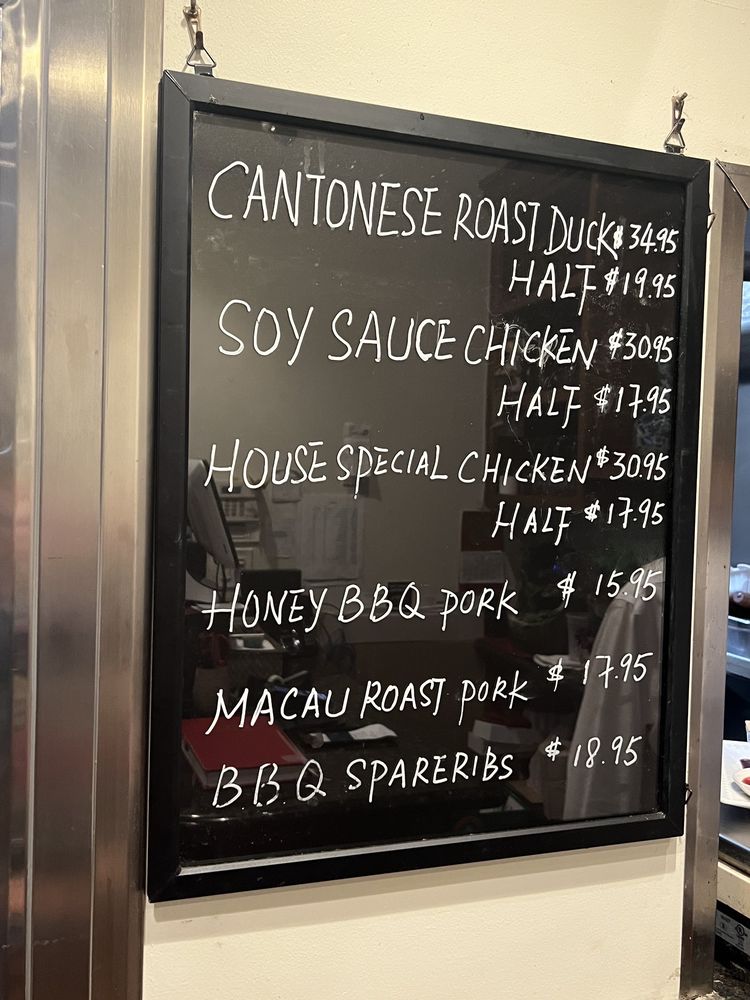 CANTONESE ROAST DUCK $34.95
HALF $19.95
SOY SAUCE CHICKEN $30.95
HALF $17.95
HOUSE SPECIAL CHICKEN $30.95
HALF $17.95
HONEY BBQ PORK $ 15.95
MACAU ROAST PORK $ 17.95
B.B.Q SPARERIBS $ 18.95